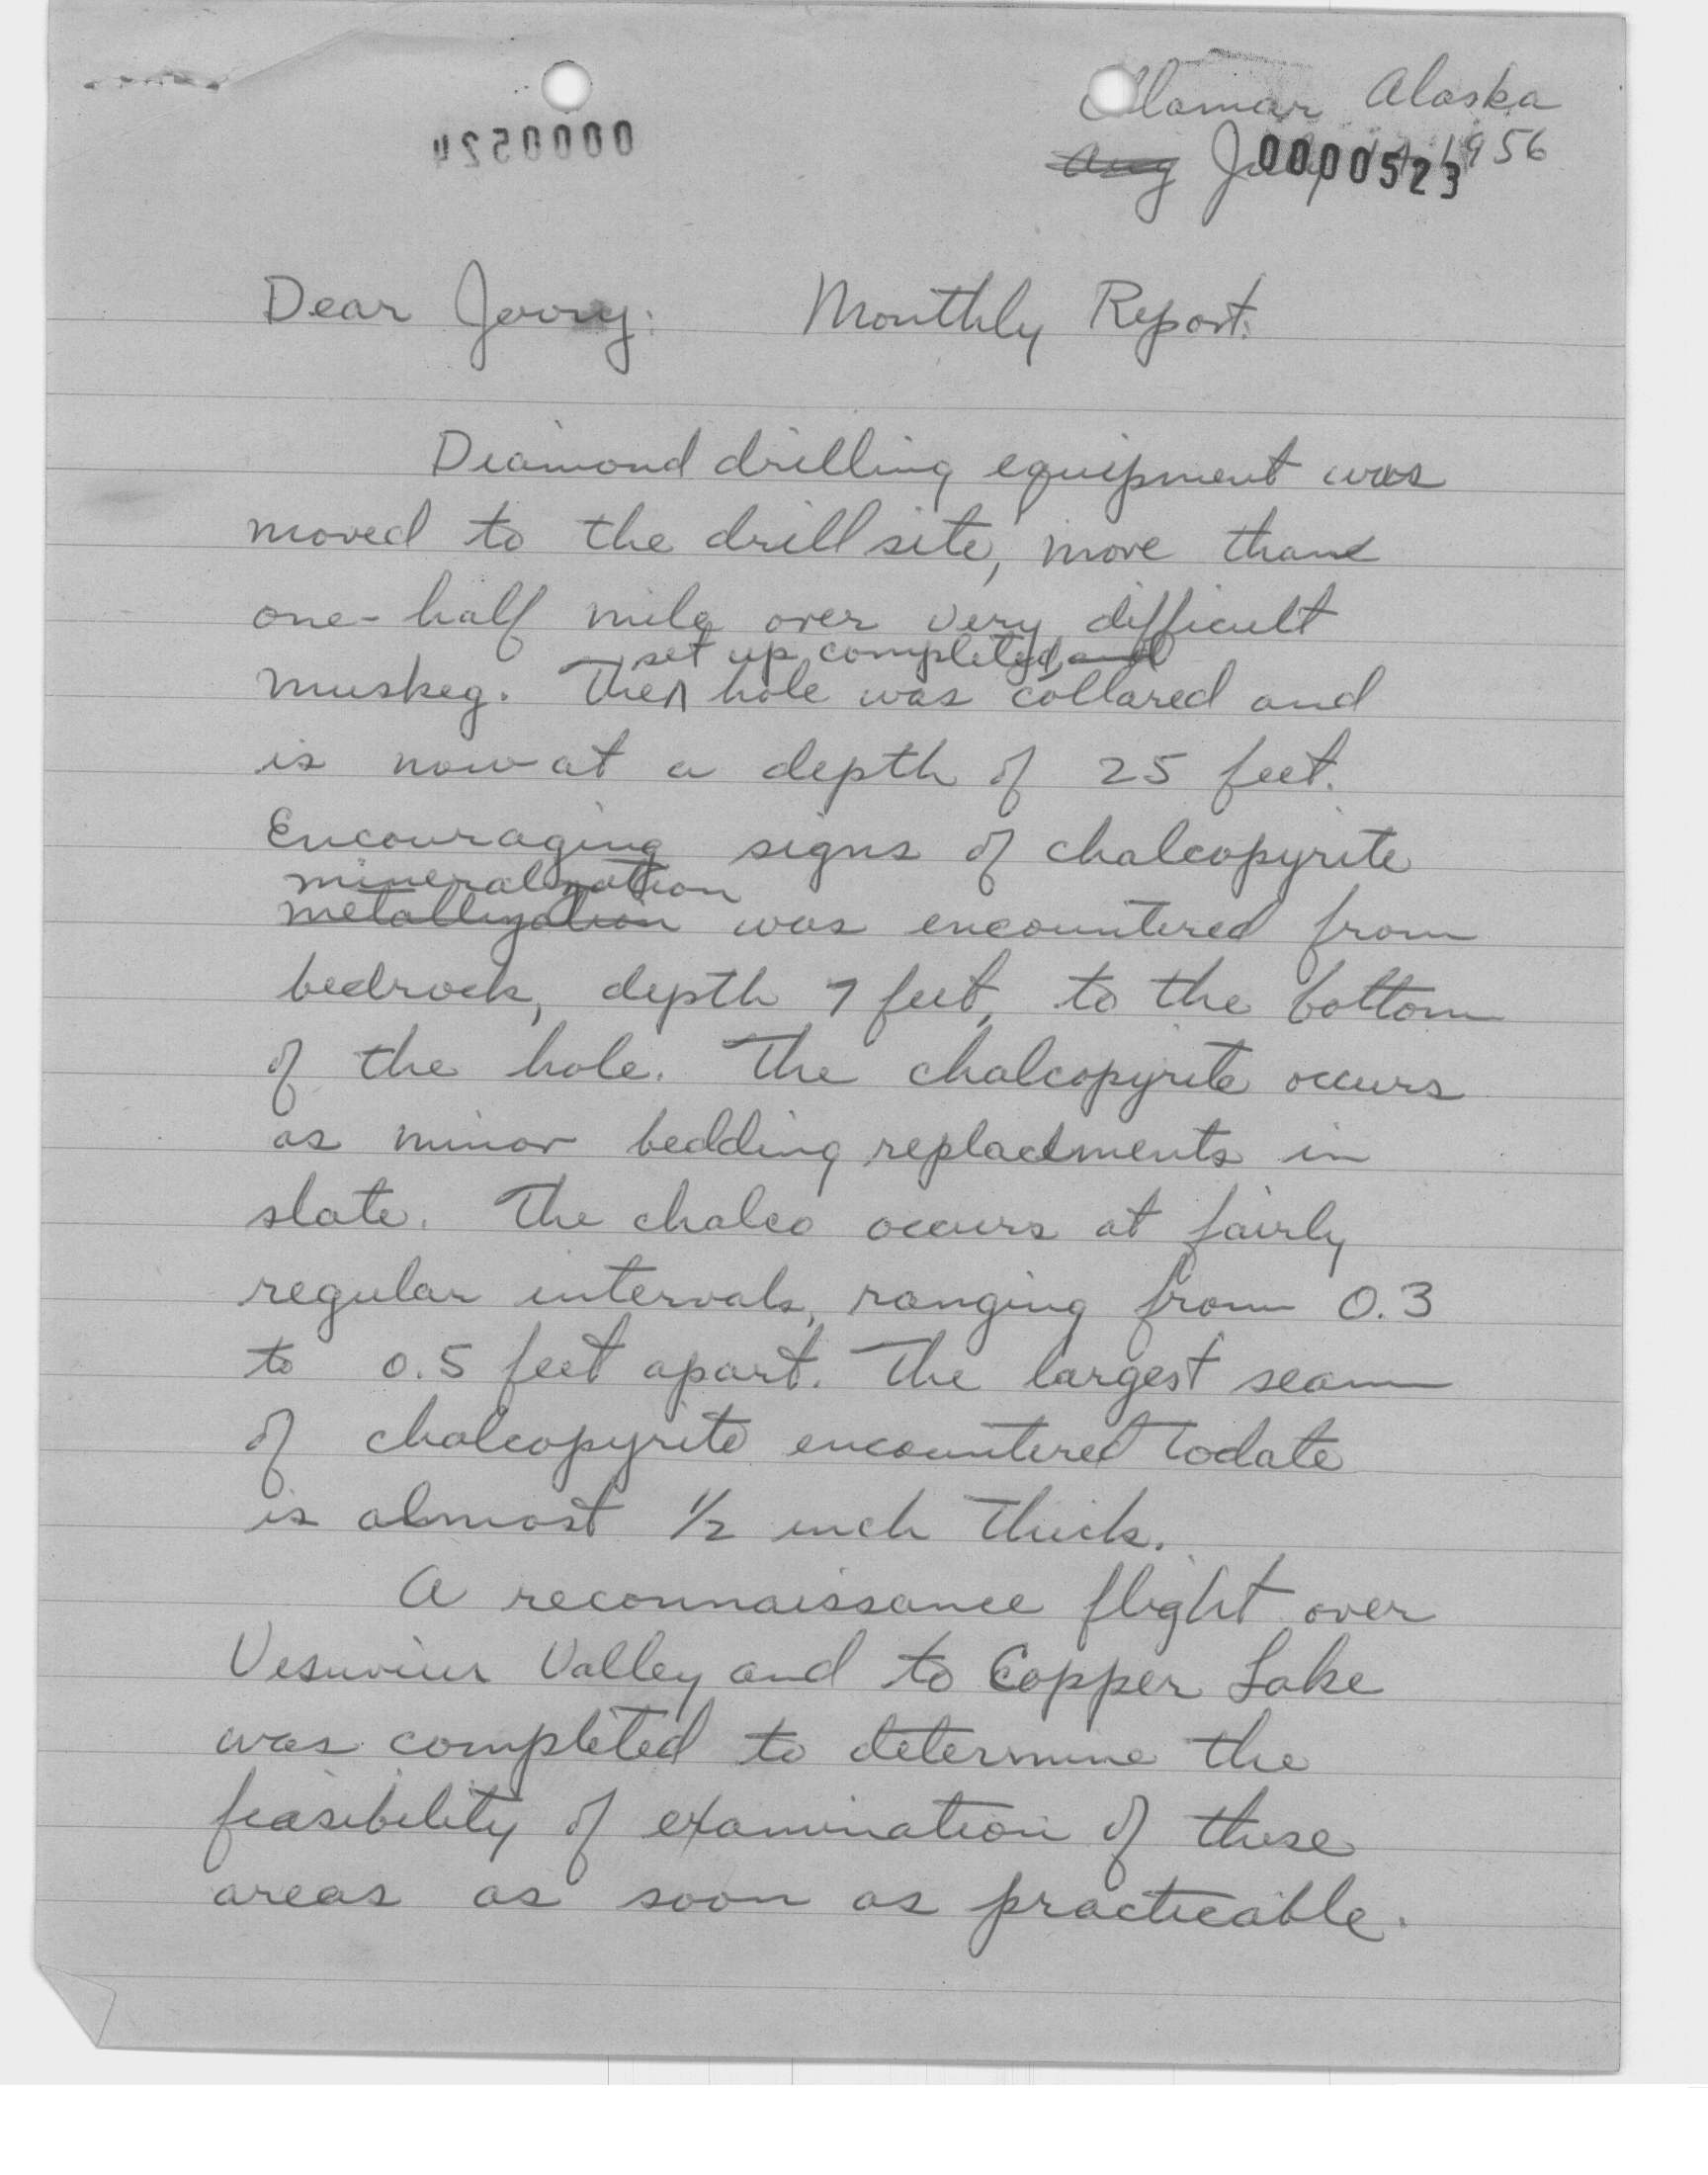 Alaska
0000524
Aug July 1956
0000523
Dear Jerry: Monthly Report.
Diamond drilling equipment was
moved to the drill site, more than
one-half mile over very difficult
set up completed, and
muskeg. The hole was collared and
is now at a depth of 25 feet.
Encouraging signs of chalcopyrite
mineralization
metallization was encountered from
bedrock, depth 7 feet, to the bottom
of the hole. The chalcopyrite occurs
as minor bedding replacements in
slate. The chalco occurs at fairly
regular intervals, ranging from 0.3
to 0.5 feet apart. The largest seam
of chalcopyrite encountered todate
is almost 1/2 inch thick.
A reconnaissance flight over
Vesuvius Valley and to Copper Lake
was completed to determine the
feasibility of examination of these
areas as soon as practicable.